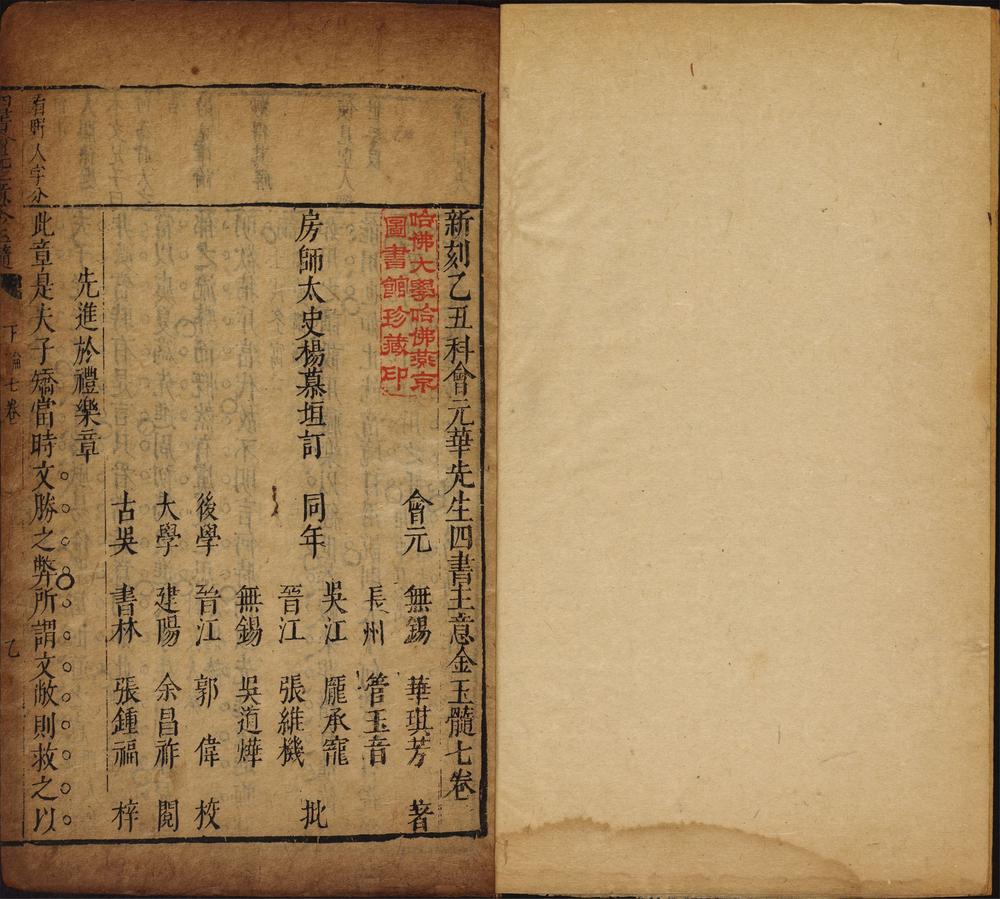 新刻乙丑科會元華先生四書主意金玉髓七卷
哈佛大學哈佛燕京
圖書館珍藏印
會元 無錫 華琪芳 著
長州 管玉音
吳江 龐承寵
房師太史楊慕垣訂 同年 晉江 張維機 批
無錫 吳道燁
後學 晉江 郭偉 校
大學 建陽 余昌祚 閱
古吳 書林 張鍾福 梓
先進於禮樂章
此章是夫子矯當時文勝之弊所謂文敝則救之以
下論七卷
乙